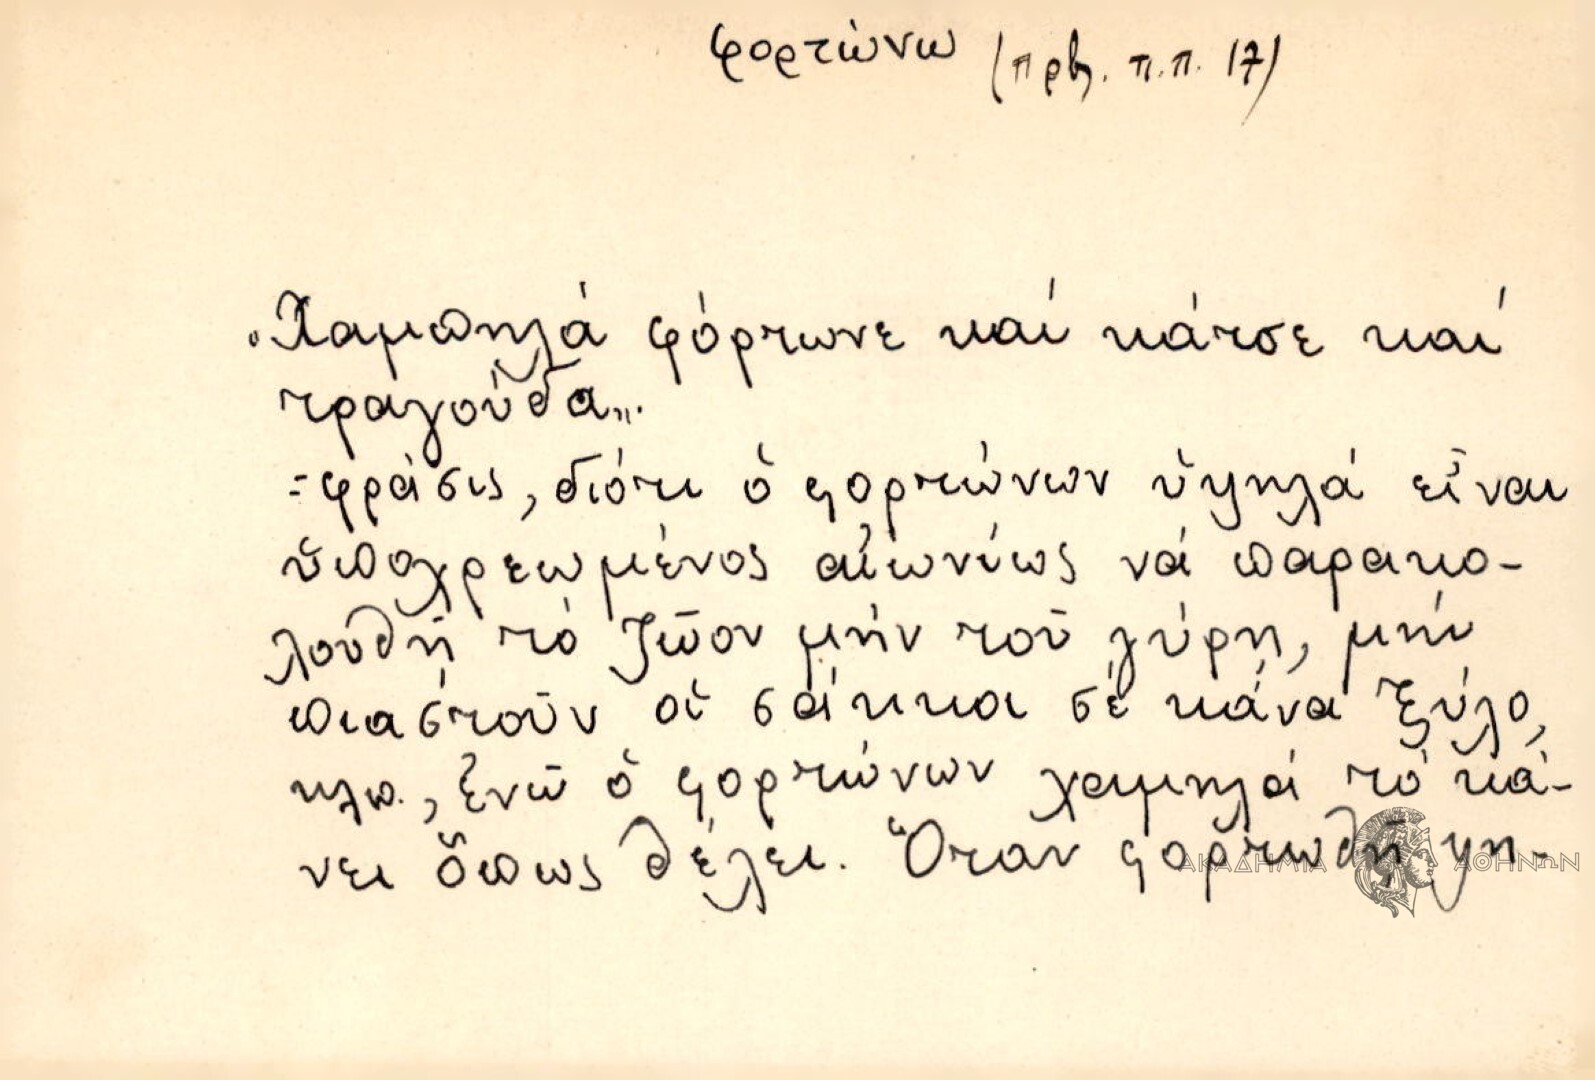 φορτώνω (πρβ. π.π. 17)
"Χαμπηλά φόρτωνε καί κάτσε καί
τραγούδα".
=φράσις, διότι ὁ φορτώνων ὑψηλά εἶναι
ὑποχρεωμένος αἰωνίως νά παρακο-
λουθῇ τό ζῶον μήν τοῦ γύρη, μήν
πιαστοῦν οἱ σάκκοι σέ κάνα ξύλο,
κλπ., ἐνῶ ὁ φορτώνων χαμηλά τό κά-
νει ὅπως θέλει. Ὅταν φορτωθῇ ψη-
ΑΚΑΔΗΜΙΑ ΑΘΗΝΩΝ